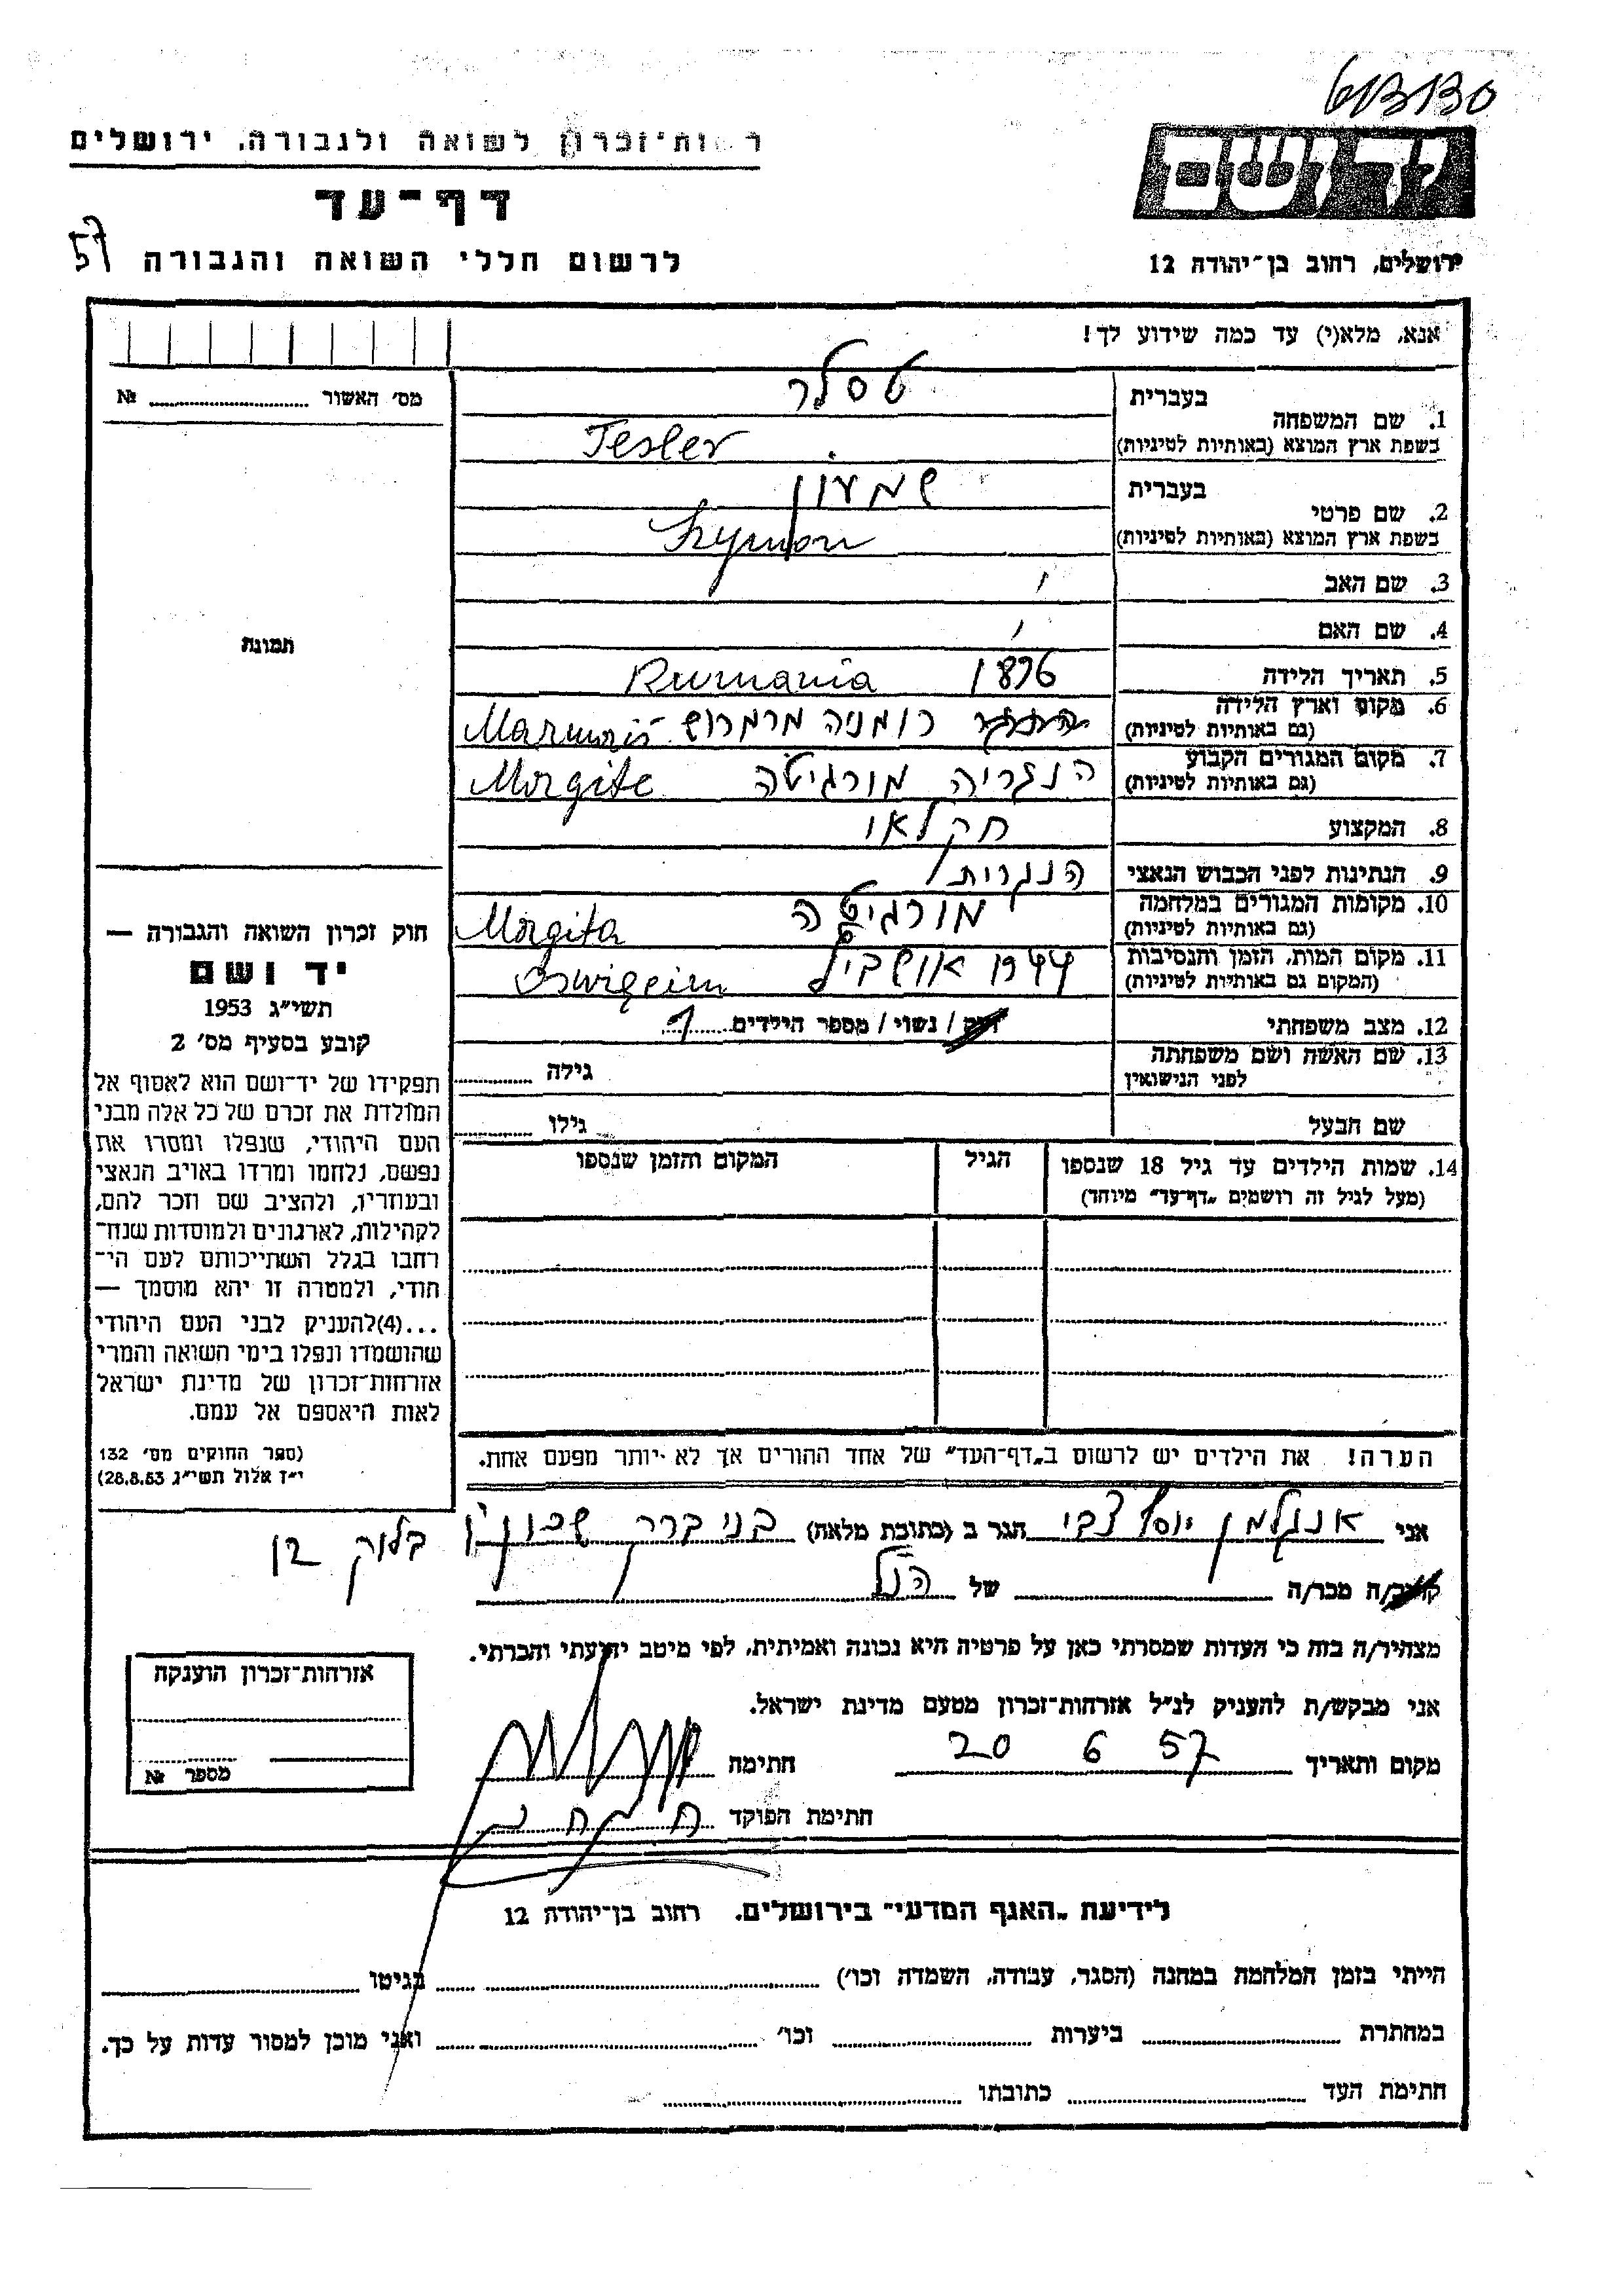 613130
רשות־זכרון לשואה ולגבורה, ירושלים
יד ושם
דף־עד
57
לרשום חללי השואה והגבורה
ירושלים, רחוב בן־יהודה 12
אנא, מלא(י) עד כמה שידוע לך!
מס׳ האשור № 
1. שם המשפחה
בעברית טסלר
בשפת ארץ המוצא (באותיות לטיניות) Tesler
2. שם פרטי
בעברית שמעון
בשפת ארץ המוצא (באותיות לטיניות) Szymon
3. שם האב
4. שם האם
תמונה
5. תאריך הלידה 1876 Rumania
6. מקום וארץ הלידה רומניה מרמרוש
(גם באותיות לטיניות)
7. מקום המגורים הקבוע הנגריה מורגיטה Morgite
(גם באותיות לטיניות)
8. המקצוע חקלאי
9. הנתינות לפני הכבוש הנאצי הנגרית
10. מקומות המגורים במלחמה מורגיטה Morgita
(גם באותיות לטיניות)
11. מקום המות, הזמן והנסיבות 1944
(המקום גם באותיות לטיניות)
12. מצב משפחתי רווק / נשוי / מספר הילדים
13. שם האשה ושם משפחתה גילה
לפני הנישואין
שם הבעל גילו
14. שמות הילדים עד גיל 18 שנספו הגיל המקום והזמן שנספו
(מעל לגיל זה רושמים „דף־עד״ מיוחד)
חוק זכרון השואה והגבורה —
יד ושם
תשי״ג 1953
קובע בסעיף מס׳ 2
תפקידו של יד־ושם הוא לאסוף אל
המולדת את זכרם של כל אלה מבני
העם היהודי, שנפלו ומסרו את
נפשם, נלחמו ומרדו באויב הנאצי
ובעוזריו, ולהציב שם וזכר להם,
לקהילות, לארגונים ולמוסדות שנח־
רחבו בגלל השתייכותם לעם הי־
חודי, ולמטרה זו יהא מוסמך —
...(4)להעניק לבני העם היהודי
שהושמדו ונפלו בימי השואה והמרי
אזרחות־זכרון של מדינת ישראל
לאות היאספם אל עמם.
(ספר החוקים מס׳ 132
י״ז אלול תשי״ג 28.8.53)
הערה! את הילדים יש לרשום ב„דף־העד״ של אחד ההורים אך לא יותר מפעם אחת.
אני אנגלמן יוסף צבי הגר ב (כתובת מלאה) בני ברק שכון
בלוק
קרוב/ה מכר/ה של הנ״ל
מצהיר/ה בזה כי העדות שמסרתי כאן על פרטיה היא נכונה ואמיתית, לפי מיטב ידיעתי והכרתי.
אני מבקש/ת להעניק לנ״ל אזרחות־זכרון מטעם מדינת ישראל.
מקום ותאריך 20 6 57 חתימה
חתימת הפוקד
אזרחות־זכרון הוענקה
מספר №
לידיעת „האגף המדעי״ בירושלים, רחוב בן־יהודה 12
הייתי בזמן המלחמה במחנה (הסגר, עבודה, השמדה וכו׳) בגיטו
במחתרת ביערות וכו׳ ואני מוכן למסור עדות על כך.
חתימת העד כתובתו